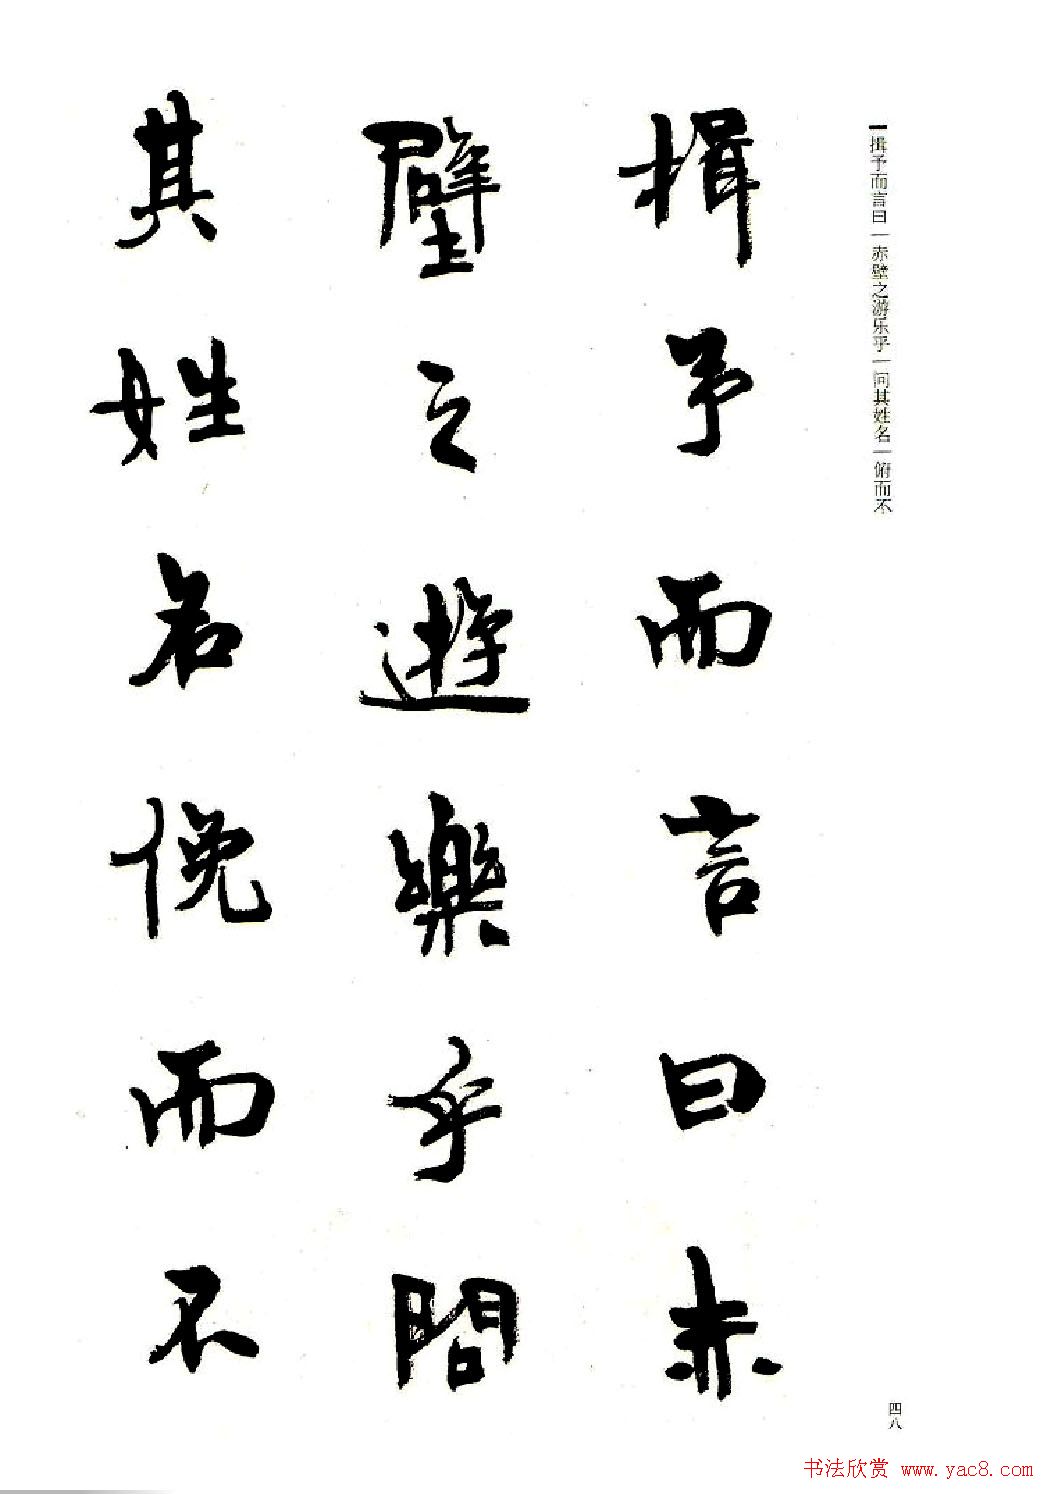 揖予而言曰|赤壁之游乐乎|问其姓名|俯而不
揖予而言曰赤
壁之遊樂乎問
其姓名俛而不
四八
书法欣赏 www.yac8.com